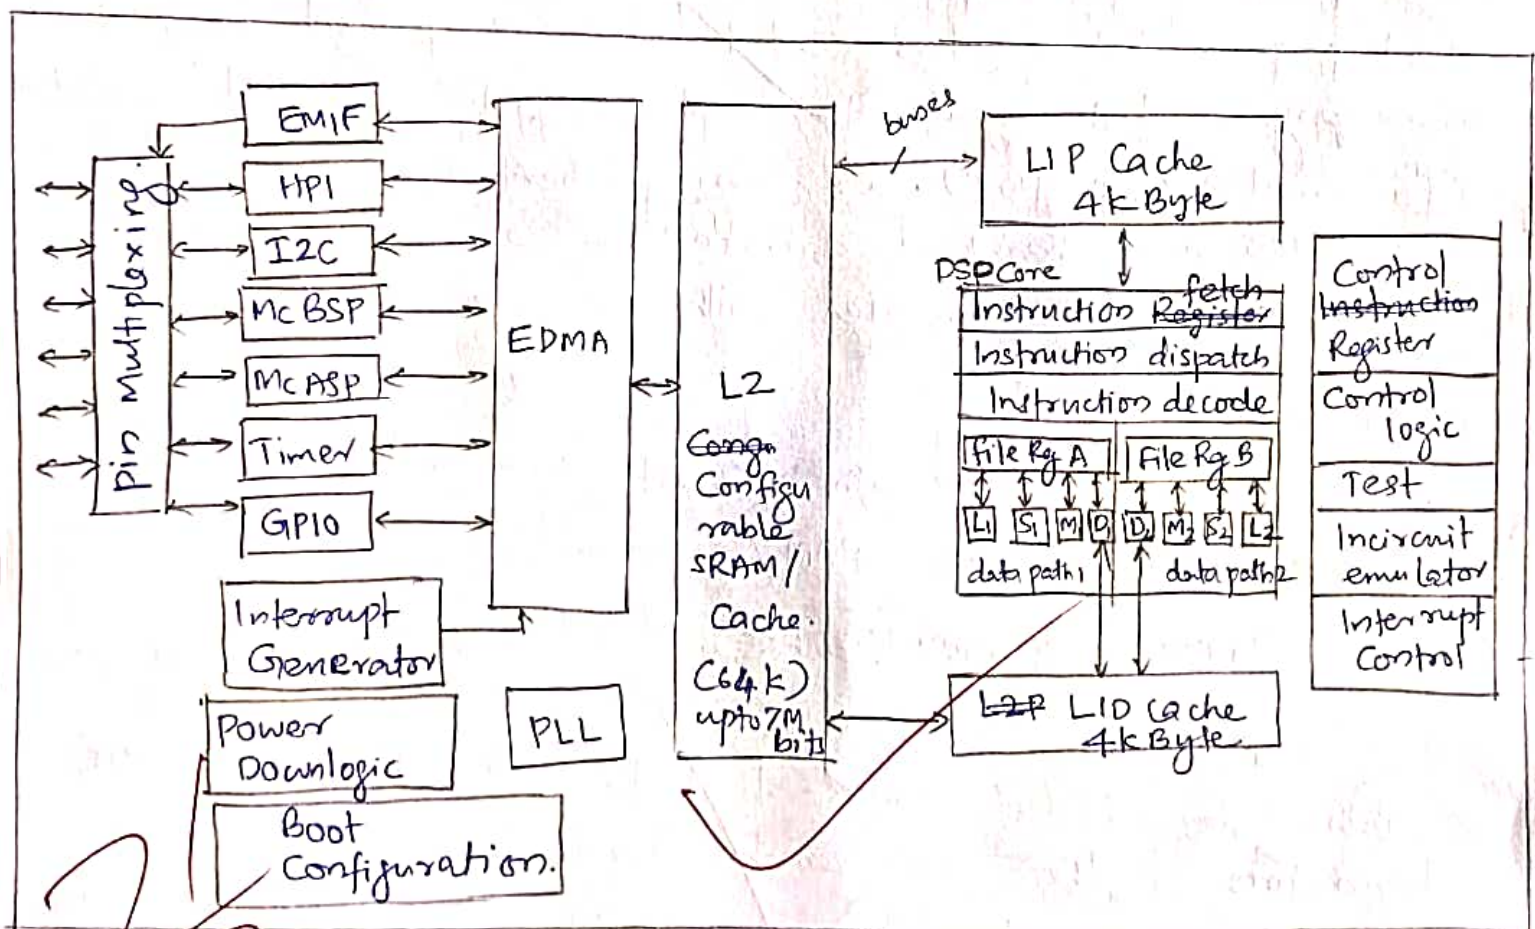 EMIF
HPI
I2C
McBSP
McASP
Timer
GPIO
pin multiplexing.
Interrupt
Generator
Power
Downlogic
Boot
Configuration.
PLL
EDMA
L2
Congn
Configu
rable
SRAM/
Cache.
(64k)
upto 7M
bits
buses
L1P Cache
4k Byte
DSP Core
fetch
Instruction Register
Instruction dispatch
Instruction decode
file Rg A
File Rg B
L1 S1 M1 D1 D2 M2 S2 L2
data path1 data path2
L2P L1D Cache
4k Byte
Control
Instruction
Register
Control
logic
Test
Incircuit
emulator
Interrupt
Control